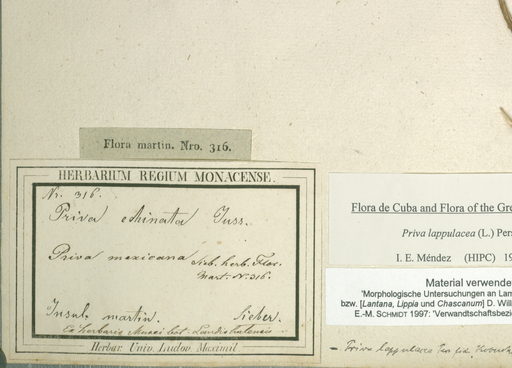 Flora martin. Nro. 316.
HERBARIUM REGIUM MONACENSE.
Nr. 316.
Priva echinata Juss.
Priva mexicana Sieb. herb. Flor.
Mart. N. 316.
Insul. martin. Sieber.
Ex herbario Musei bot. Landishutensis
Herbar. Univ. Ludov. Maximil
Flora de Cuba and Flora of the Gre
Priva lappulacea (L.) Pers
I. E. Méndez (HIPC) 19
Material verwende
"Morphologische Untersuchungen an Lan
bzw. [Lantana, Lippia und Chascanum] D. Will
E.-M. SCHMIDT 1997: "Verwandtschaftsbezie
– Priva lappulacea Pers